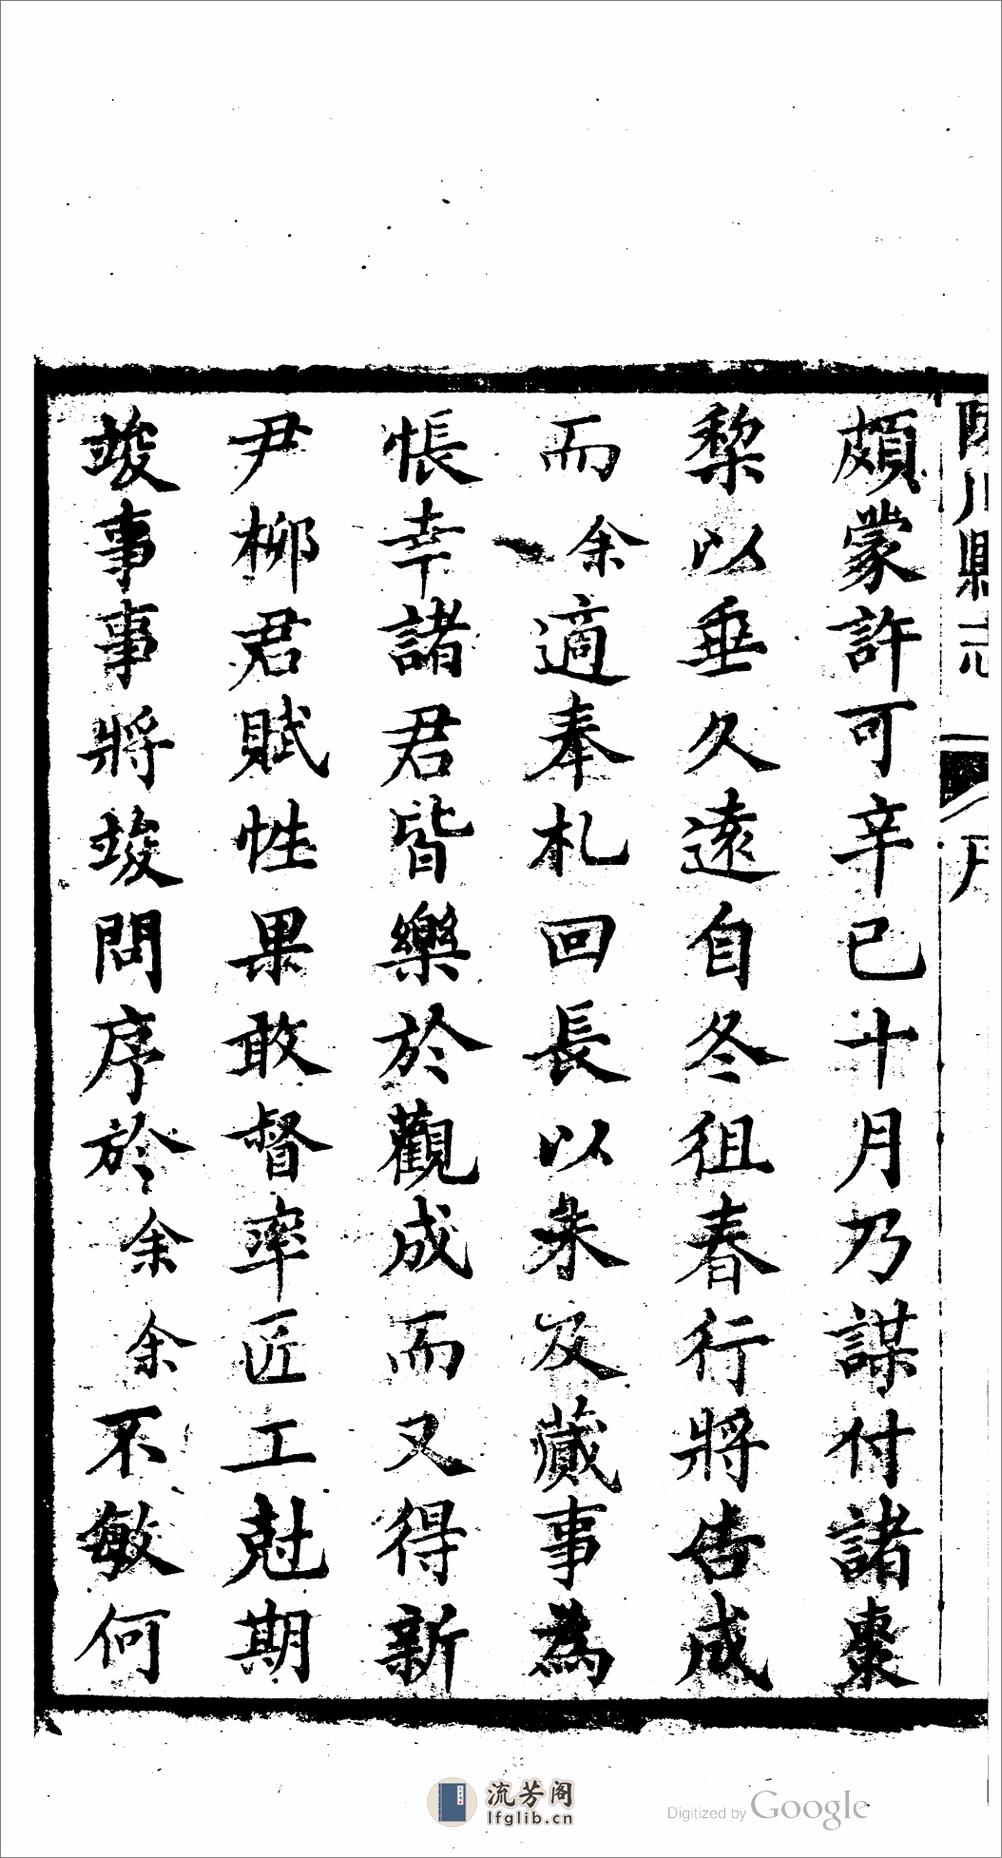 陵川縣志
頗蒙許可辛巳十月乃謀付諸棗
棃以垂久遠自冬徂春行將告成
而余適奉札回長以未及蕆事為
悵幸諸君皆樂於觀成而又得新
尹栁君賦性果敢督率匠工尅期
竣事事將竣問序於余余不敏何
流芳阁
lfglib.cn
Digitized by Google